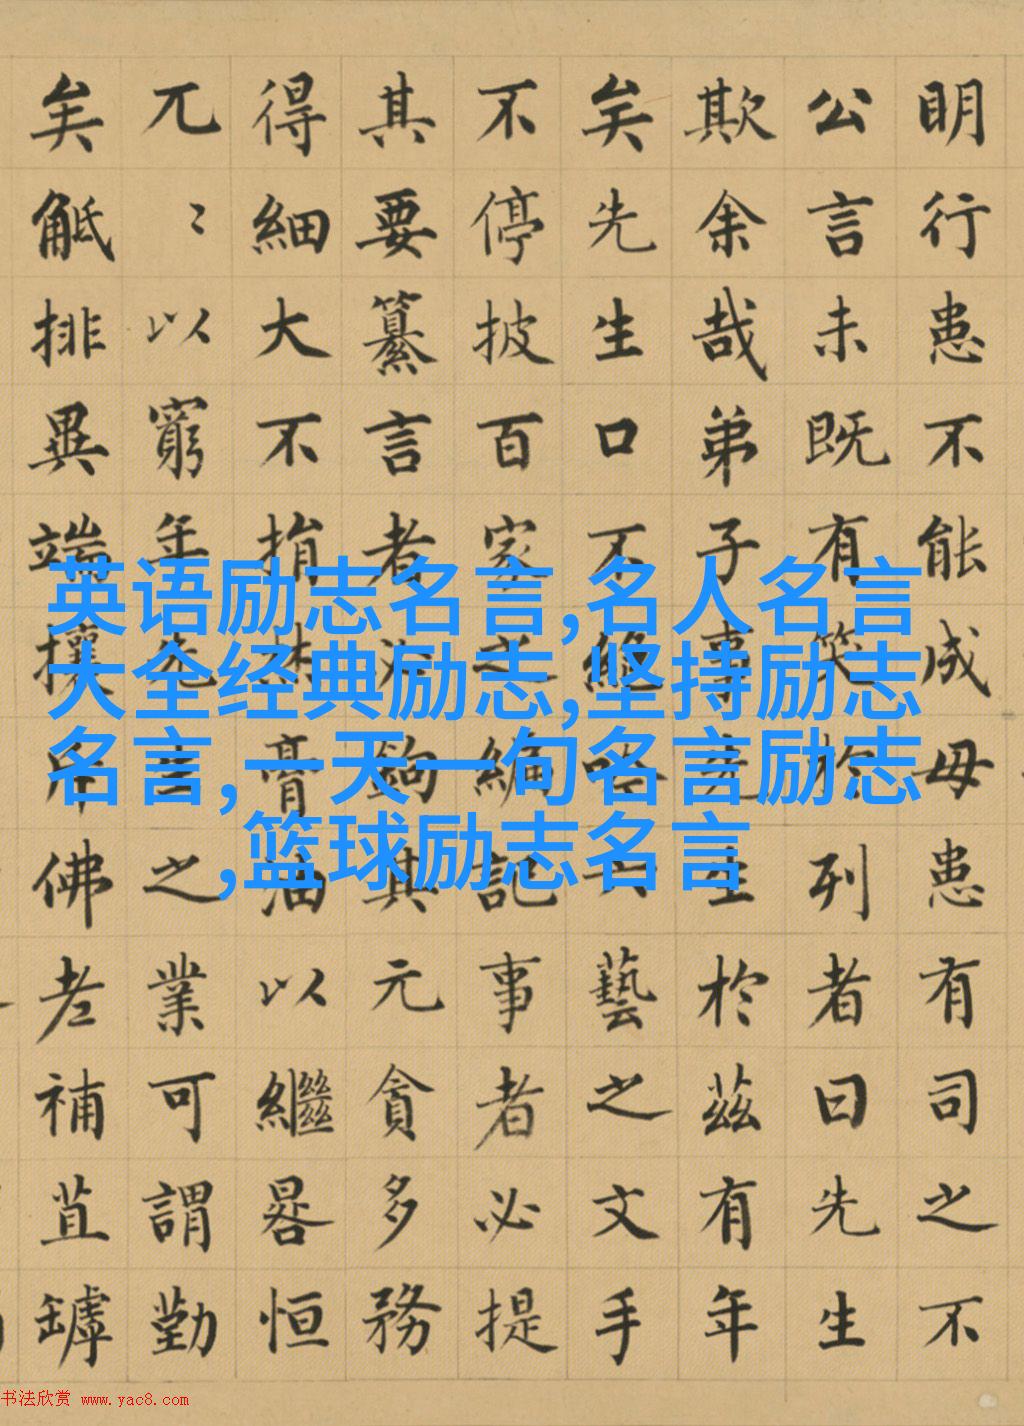 明行患不能成毋患有司之不
公言未既有笑於列者曰先生
欺余哉弟子事先生於茲有年
矣先生口不絕吟六藝之文手
不停披百家之編記事者必提
其要纂言者必鉤其元貪多務
得細大不捐焚膏油以繼晷恒
兀〻以窮年先生之業可謂勤
矣觝排異端攘斥佛老補苴罅
英语励志名言,名人名言
大全经典励志,坚持励志
名言,一天一句名言励志
,篮球励志名言
书法欣赏 www.yac8.com